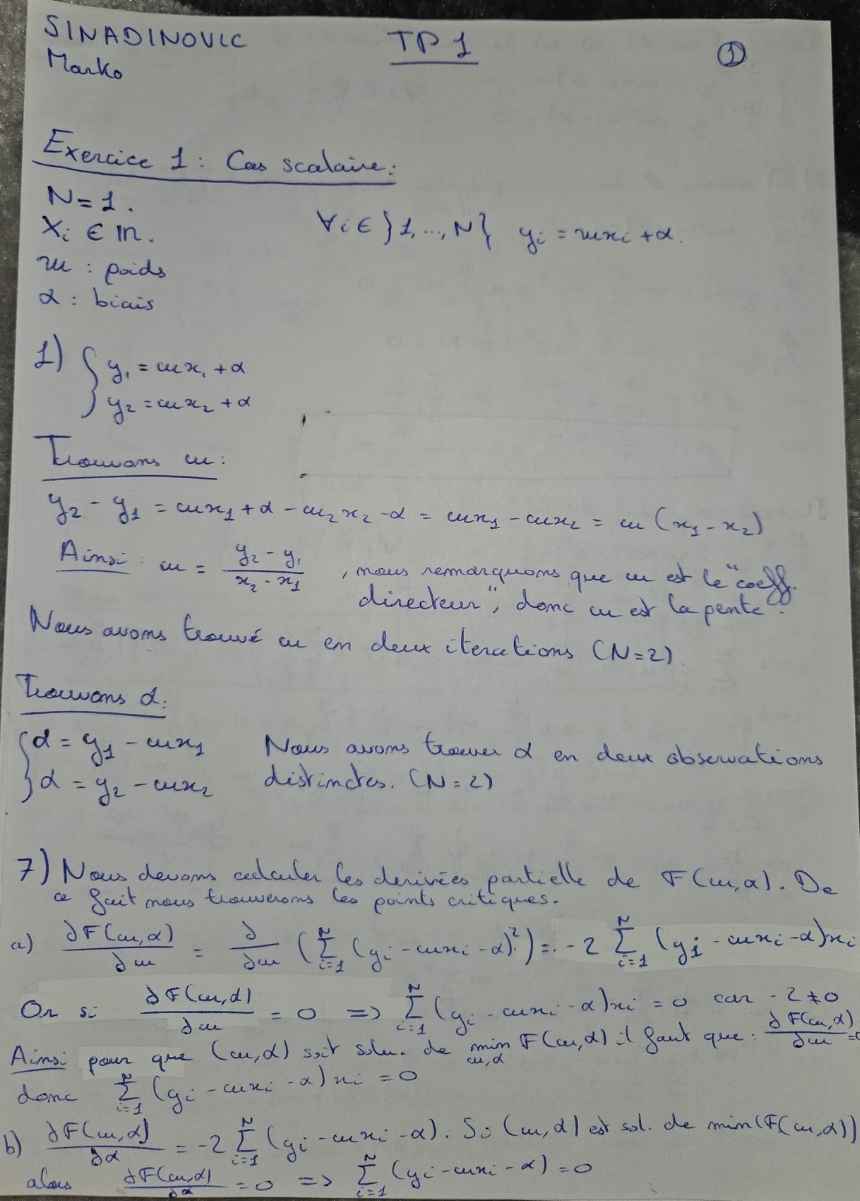 SINADINOVIC
Marko
TP1
①
Exercice 1 : Cas scalaire :
N=1.
Xi ∈ ℝ.
∀i ∈ }1,...,N{ yi = wxi + α.
w : poids
α : biais
1) { y1 = wx1 + α
y2 = wx2 + α
Trouvons w :
y2 - y1 = wx1 + α - w2x2 - α = wx1 - wx2 = w (x1 - x2)
Ainsi : w = (y2 - y1)/(x2 - x1) , nous remarquons que w est le "coeff.
directeur", donc w est la pente.
Nous avons trouvé w en deux iterations (N=2)
Trouvons α :
{ α = y1 - wx1 Nous avons trouver α en deux observations
α = y2 - wx2 distinctes. (N=2)
7) Nous devons calculer les derivées partielle de F(w,α). De
ce fait nous trouverons les points critiques.
a) ∂F(w,α)/∂w = ∂/∂w (∑_{i=1}^{N} (yi - wxi - α)²) = -2 ∑_{i=1}^{N} (yi - wxi - α)xi
Or si ∂F(w,α)/∂w = 0 => ∑_{i=1}^{N} (yi - wxi - α)xi = 0 car -2 ≠ 0
Ainsi pour que (w,α) soit solu. de min_{w,α} F(w,α) il faut que : ∂F(w,α)/∂w = 0
donc ∑_{i=1}^{N} (yi - wxi - α)xi = 0
b) ∂F(w,α)/∂α = -2 ∑_{i=1}^{N} (yi - wxi - α). Si (w,α) est sol. de min(F(w,α))
alors ∂F(w,α)/∂α = 0 => ∑_{i=1}^{N} (yi - wxi - α) = 0